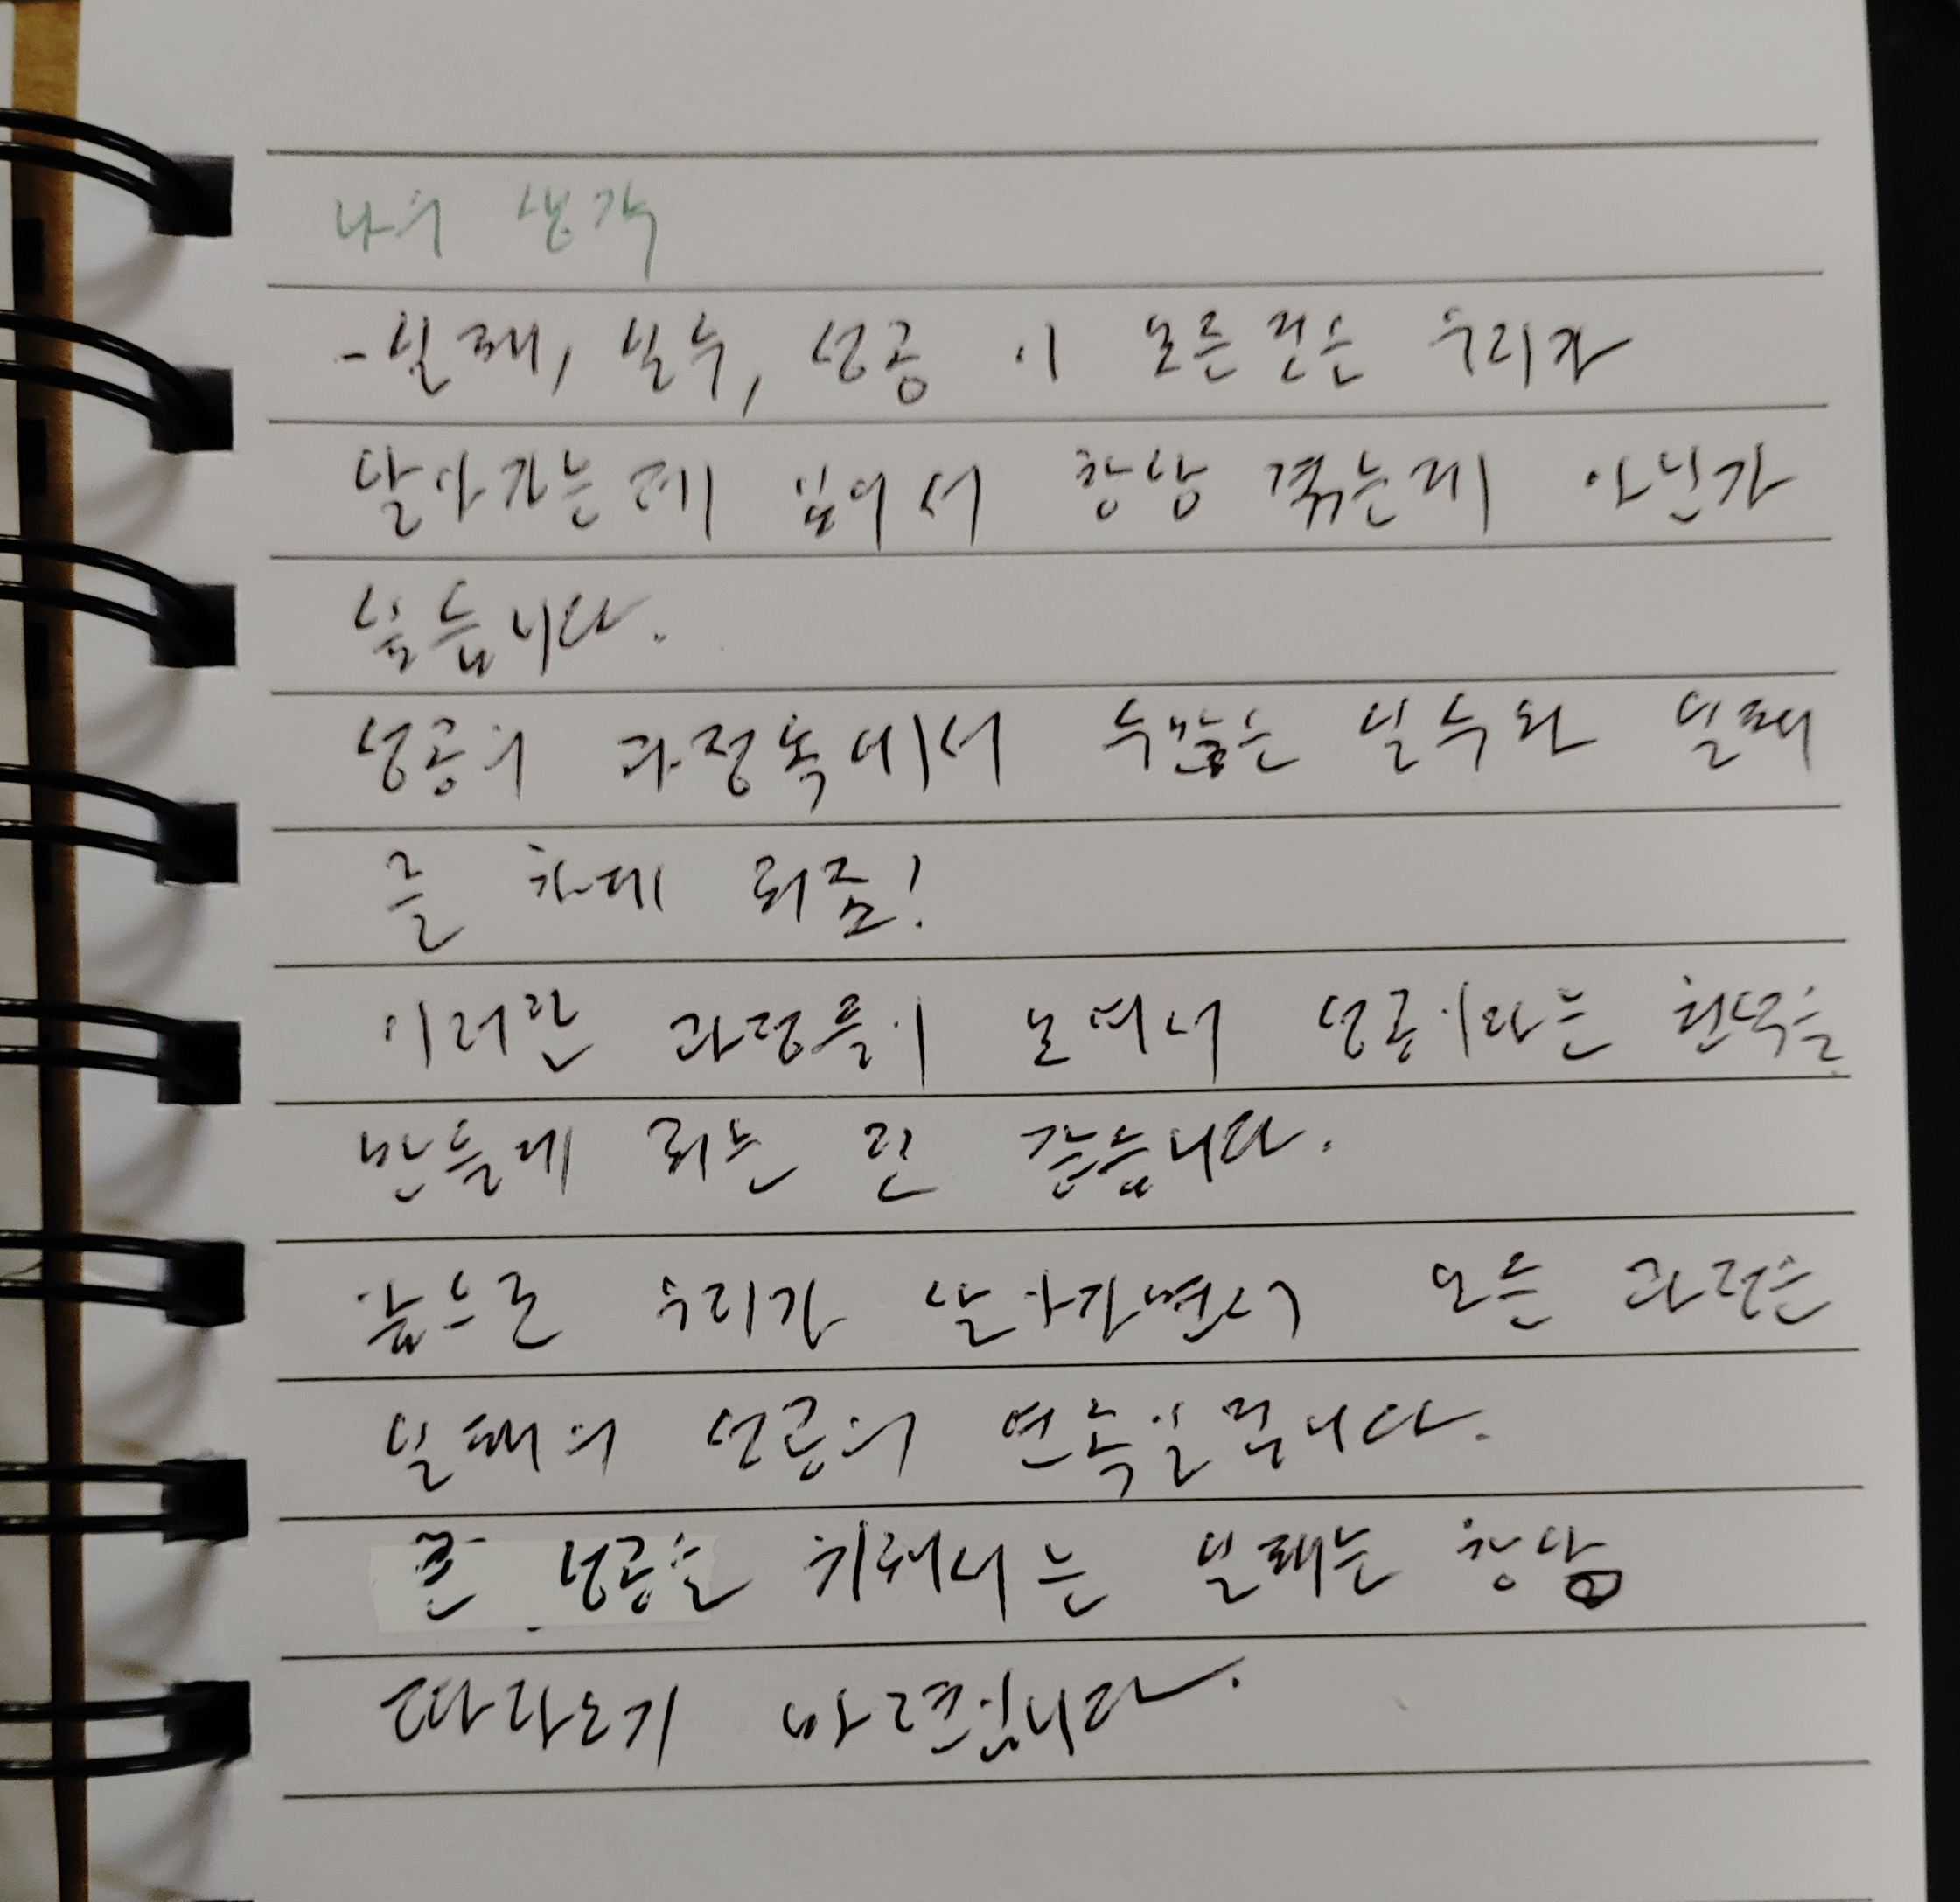 나의 생각
-실패, 실수, 성공 이 모든것은 우리가
살아가는데 있어서 항상 겪는게 아닌가
싶습니다.
성공의 과정속에서 수많은 실수와 실패
를 하게 되죠!
이러한 과정들이 모여서 성공이라는 현실을
만들게 되는 것 같습니다.
끝으로 우리가 살아가면서 모든 과정은
실패의 성공의 연속일겁니다.
큰 성공을 위해서는 실패는 항상
따라오기 마련입니다.